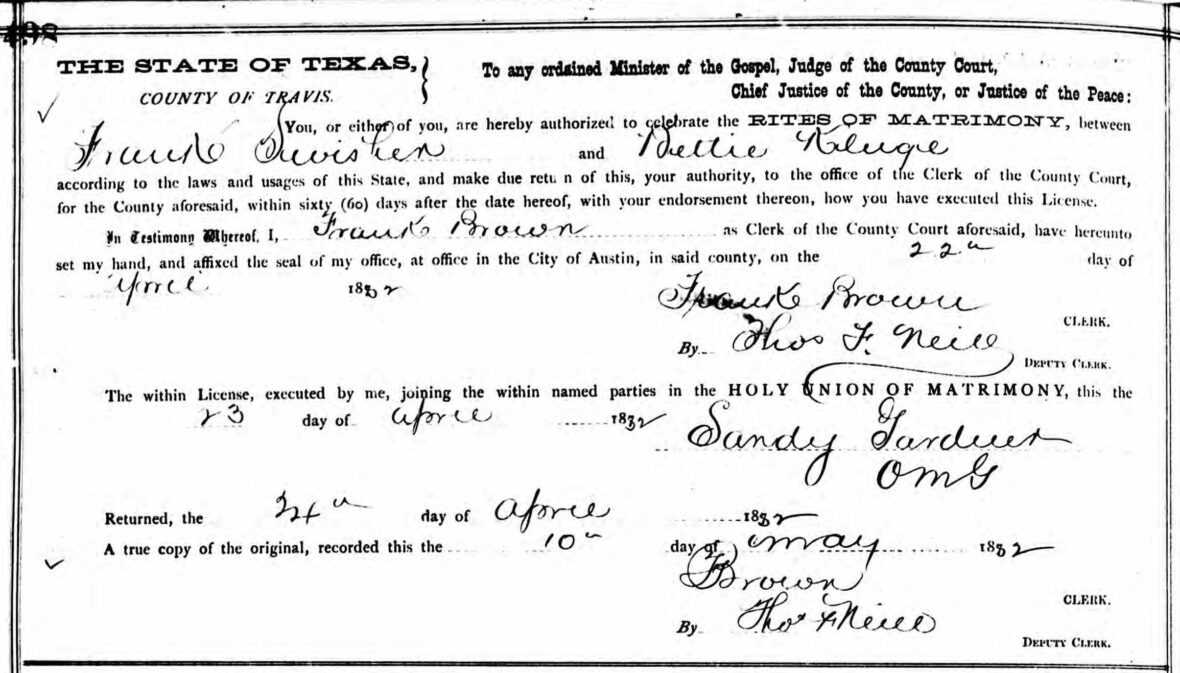 498
THE STATE OF TEXAS,
COUNTY OF TRAVIS.
To any ordained Minister of the Gospel, Judge of the County Court,
Chief Justice of the County, or Justice of the Peace:
You, or either of you, are hereby authorized to celebrate the RITES OF MATRIMONY, between
Frank Swisher and Nettie Kluge
according to the laws and usages of this State, and make due retu n of this, your authority, to the office of the Clerk of the County Court,
for the County aforesaid, within sixty (60) days after the date hereof, with your endorsement thereon, how you have executed this License.
In Testimony Whereof, I, Frank Brown as Clerk of the County Court aforesaid, have hereunto
set my hand, and affixed the seal of my office, at office in the City of Austin, in said county, on the 22" day of
April 1882
Frank Brown
CLERK.
By Thos F. Neill
DEPUTY CLERK.
The within License, executed by me, joining the within named parties in the HOLY UNION OF MATRIMONY, this the
23 day of April 1882
Sandy Gardner
OMG
Returned, the 24" day of April 1882
A true copy of the original, recorded this the 10" day of May 1882
F Brown
CLERK.
By Thos F Neill
DEPUTY CLERK.